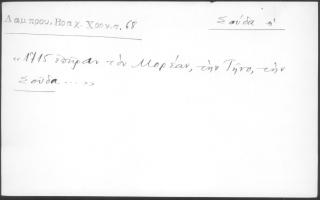 Λαμπρου, Βραχ. Χρον. π. 68
Σούδα, ἡ
« 1715 ἐπῆραν τὸν Μορέαν, τὴν Τῆνο, τὴν
Σούδα .... »